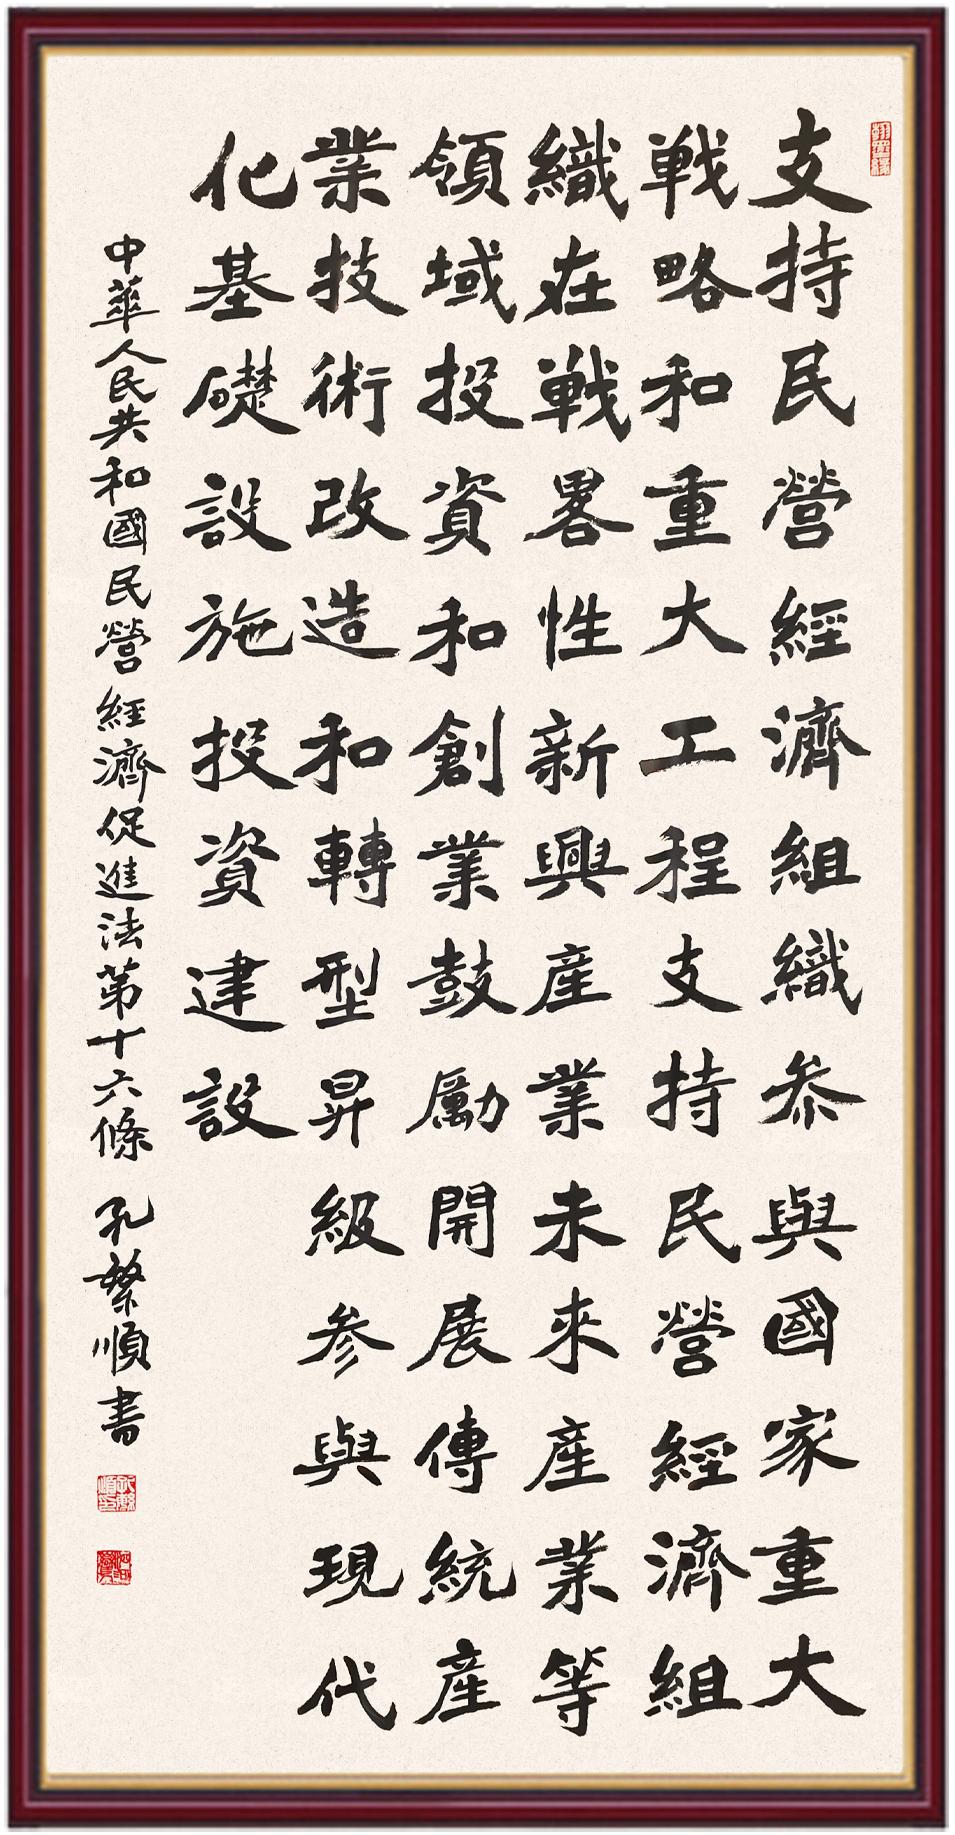 支持民營經濟組織參與國家重大
戦略和重大工程支持民營經濟組
織在戦畧性新興産業未來産業等
領域投資和創業鼓勵開展傳統産
業技術改造和轉型昇級參與現代
化基礎設施投資建設
中華人民共和國民營經濟促進法第十六條 孔繁順書